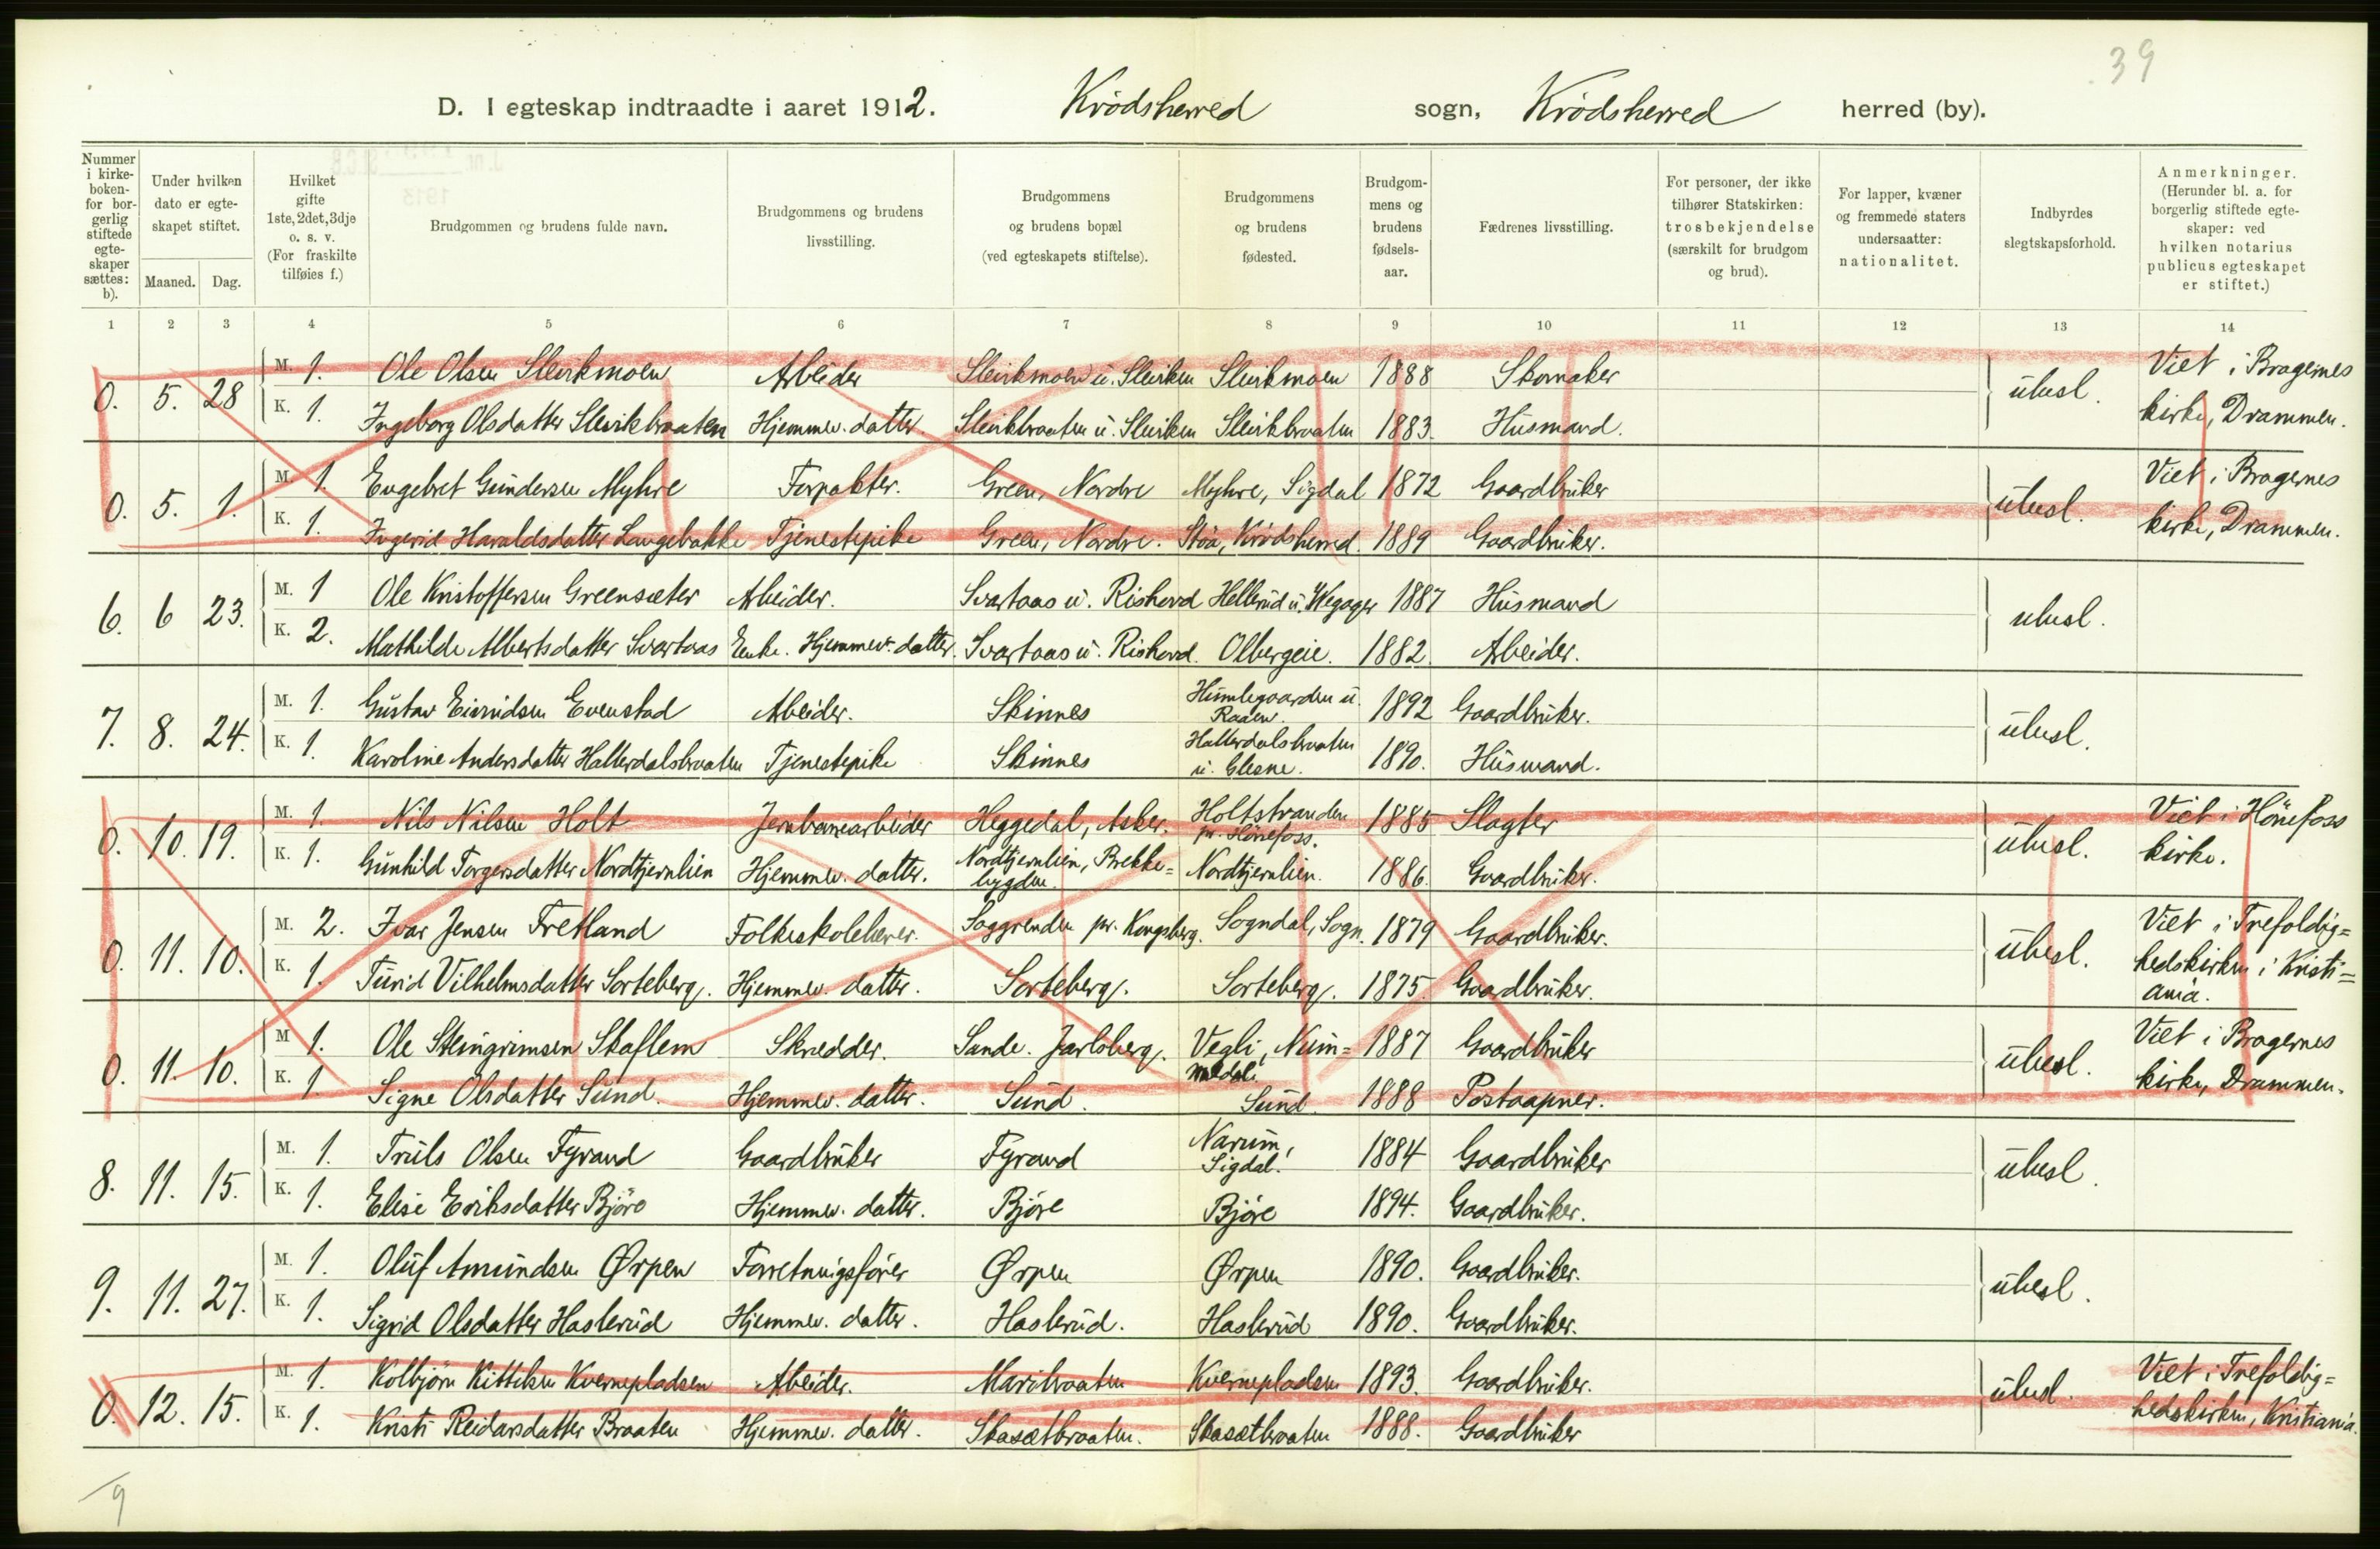 39
D. I egteskap indtraadte i aaret 1912. Krödsherred sogn, Krödsherred herred (by).
Nummer i kirkeboken- for borgerlig stiftede egteskaper sættes: b).
Under hvilken dato er egteskapet stiftet.
Maaned. Dag.
Hvilket gifte 1ste, 2det, 3dje o. s. v. (For fraskilte tilføies f.)
Brudgommen og brudens fulde navn.
Brudgommens og brudens livsstilling.
Brudgommens og brudens bopæl (ved egteskapets stiftelse).
Brudgommens og brudens fødested.
Brudgommens og brudens fødselsaar.
Fædrenes livsstilling.
For personer, der ikke tilhører Statskirken: trosbekjendelse (særskilt for brudgom og brud).
For lapper, kvæner og fremmede staters undersaatter: nationalitet.
Indbyrdes slegtskapsforhold.
Anmerkninger. (Herunder bl. a. for borgerlig stiftede egteskaper: ved hvilken notarius publicus egteskapet er stiftet.)
1 2 3 4 5 6 7 8 9 10 11 12 13 14
0. 5. 28 M. 1. Ole Olsen Sleirkmoen Arbeider Sleirkmoen u. Sleirken Sleirkmoen 1888 Skomaker ubesl. Viet i Bragernes
K. 1. Ingeborg Olsdatter Sleirkbraaten Hjemmev. datter. Sleirkbraaten u. Sleirken Sleirkbraaten 1883. Husmand. kirke, Drammen.
0. 5. 1. M. 1. Engebret Gundersen Myhre Forpakter. Green, Nordre Myhre, Sigdal 1872 Gaardbruker ubesl. Viet i Bragernes
K. 1. Ingerid Haraldsdatter Langebakke Tjenestepike Green, Nordre. Stöa, Krödsherred. 1889 Gaardbruker. kirke, Drammen.
6. 6 23. M. 1 Ole Kristoffersen Greensæter Arbeider. Svartaas u. Rishovd Hellerud u. Wegager 1887 Husmand ubesl.
K. 2. Mathilde Albertsdatter Svartaas Enke. Hjemmev. datter. Svartaas u. Rishovd. Olbergeie. 1882. Arbeider.
7. 8. 24. M. 1. Gustav Eivindsen Evenstad Arbeider. Skinnes Humlegaarden u. Raaen. 1892 Gaardbruker. ubesl.
K. 1. Karoline Andersdatter Hallerdalsbraaten Tjenestepike Skinnes Hallerdalsbraaten u. Glesne. 1890. Husmand.
0. 10. 19. M. 1. Nils Nilsen Holt Jernbanearbeider Heggedal, Asker. Holtstranden pr. Hönefoss. 1885 Slagter ubesl. Viet i Hönefoss
K. 1. Gunhild Torgersdatter Nordtjernlien Hjemmev. datter. Nordtjernlien, Brekke= bygden. Nordtjernlien. 1886. Gaardbruker. kirke.
0. 11. 10. M. 2. Ivar Jensen Fretland Folkeskolelærer. Saggrenden pr. Kongsberg. Sogndal, Sogn. 1879 Gaardbruker. ubesl. Viet i Trefoldig=
K. 1. Turid Vilhelmsdatter Sorteberg. Hjemmev. datter. Sorteberg. Sorteberg. 1875. Gaardbruker. hedskirken i Kristi= ania.
0. 11. 10. M 1. Ole Steingrimsen Skaflem Skrædder. Sande. Jarlsberg. Vegli, Num= medal. 1887 Gaardbruker ubesl. Viet i Bragernes
K. 1. Signe Olsdatter Sund. Hjemmev. datter. Sund. Sund. 1888 Postaapner. kirke, Drammen.
8. 11. 15. M. 1. Truls Olsen Fyrand Gaardbruker Fyrand Narum, Sigdal. 1884 Gaardbruker ubesl.
K. 1. Elise Eriksdatter Björe Hjemmev. datter. Björe Björe 1894. Gaardbruker.
9. 11. 27. M. 1. Oluf Amundsen Ørpen Forretningsfører Ørpen Ørpen 1890. Gaardbruker. ubesl.
K. 1. Sigrid Olsdatter Haslerud Hjemmev. datter. Haslerud. Haslerud 1890. Gaardbruker.
0. 12. 15. M. 1. Kolbjörn Kittilsen Kvernepladsen Arbeider. Maribraaten Kvernepladsen 1893. Gaardbruker. ubesl. Viet i Trefoldig=
K. 1. Kristi Reidarsdatter Braaten Hjemmev. datter. Skasætbraaten. Skasætbraaten 1888. Gaardbruker hedskirken, Kristiania.
9